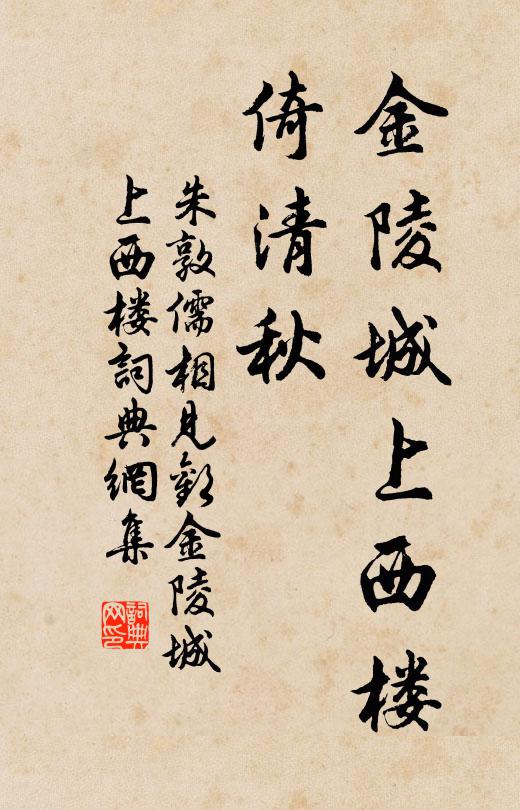 金陵城上西楼
倚清秋
朱敦儒相見歡金陵城
上西楼詞典網集
詞典
网印